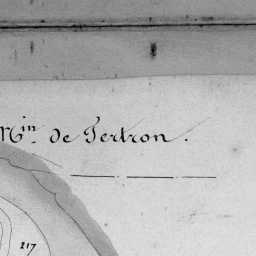 Min. de Tertron.
217